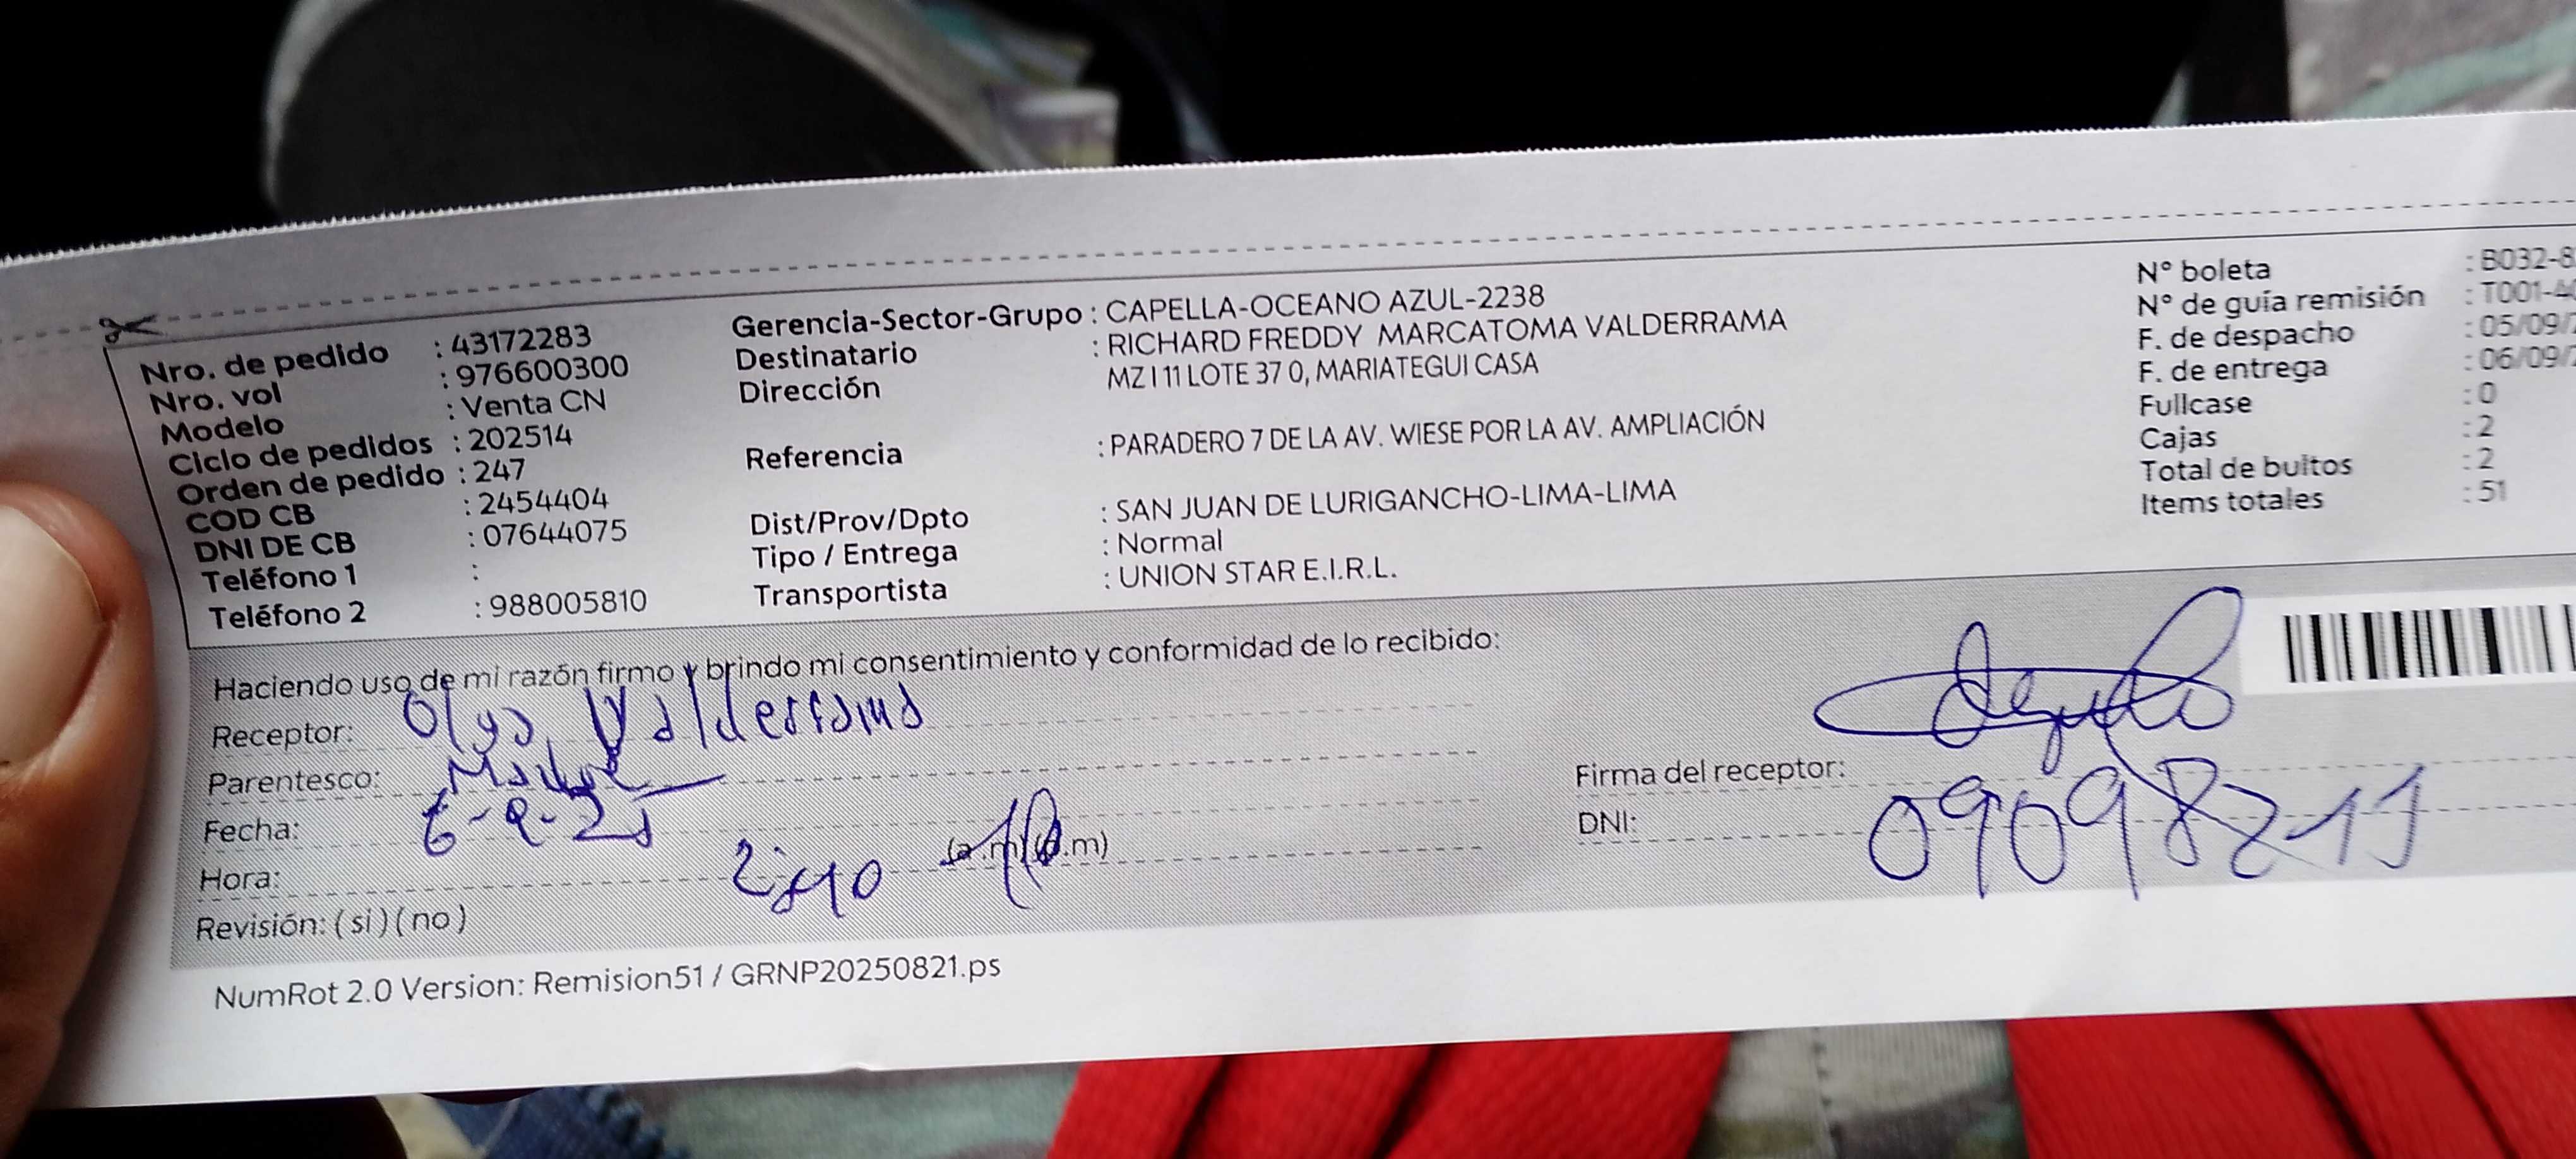 Nro. de pedido : 43172283
Nro. vol : 976600300
Modelo : Venta CN
Ciclo de pedidos : 202514
Orden de pedido : 247
COD CB : 2454404
DNI DE CB : 07644075
Teléfono 1 :
Teléfono 2 : 988005810
Gerencia-Sector-Grupo : CAPELLA-OCEANO AZUL-2238
Destinatario : RICHARD FREDDY MARCATOMA VALDERRAMA
Dirección MZ I 11 LOTE 37 0, MARIATEGUI CASA
Referencia : PARADERO 7 DE LA AV. WIESE POR LA AV. AMPLIACIÓN
Dist/Prov/Dpto : SAN JUAN DE LURIGANCHO-LIMA-LIMA
Tipo / Entrega : Normal
Transportista : UNION STAR E.I.R.L.
N° boleta : B032-8
N° de guía remisión : T001-40
F. de despacho : 05/09/
F. de entrega : 06/09/
Fullcase : 0
Cajas : 2
Total de bultos : 2
Items totales : 51
Haciendo uso de mi razón firmo y brindo mi consentimiento y conformidad de lo recibido:
Receptor: Olga Valderrama
Parentesco:
Fecha: 6-9-25
Hora: 2:40 (a.m)(p.m)
Revisión: ( si ) ( no )
Firma del receptor:
DNI:
NumRot 2.0 Version: Remision51 / GRNP20250821.ps